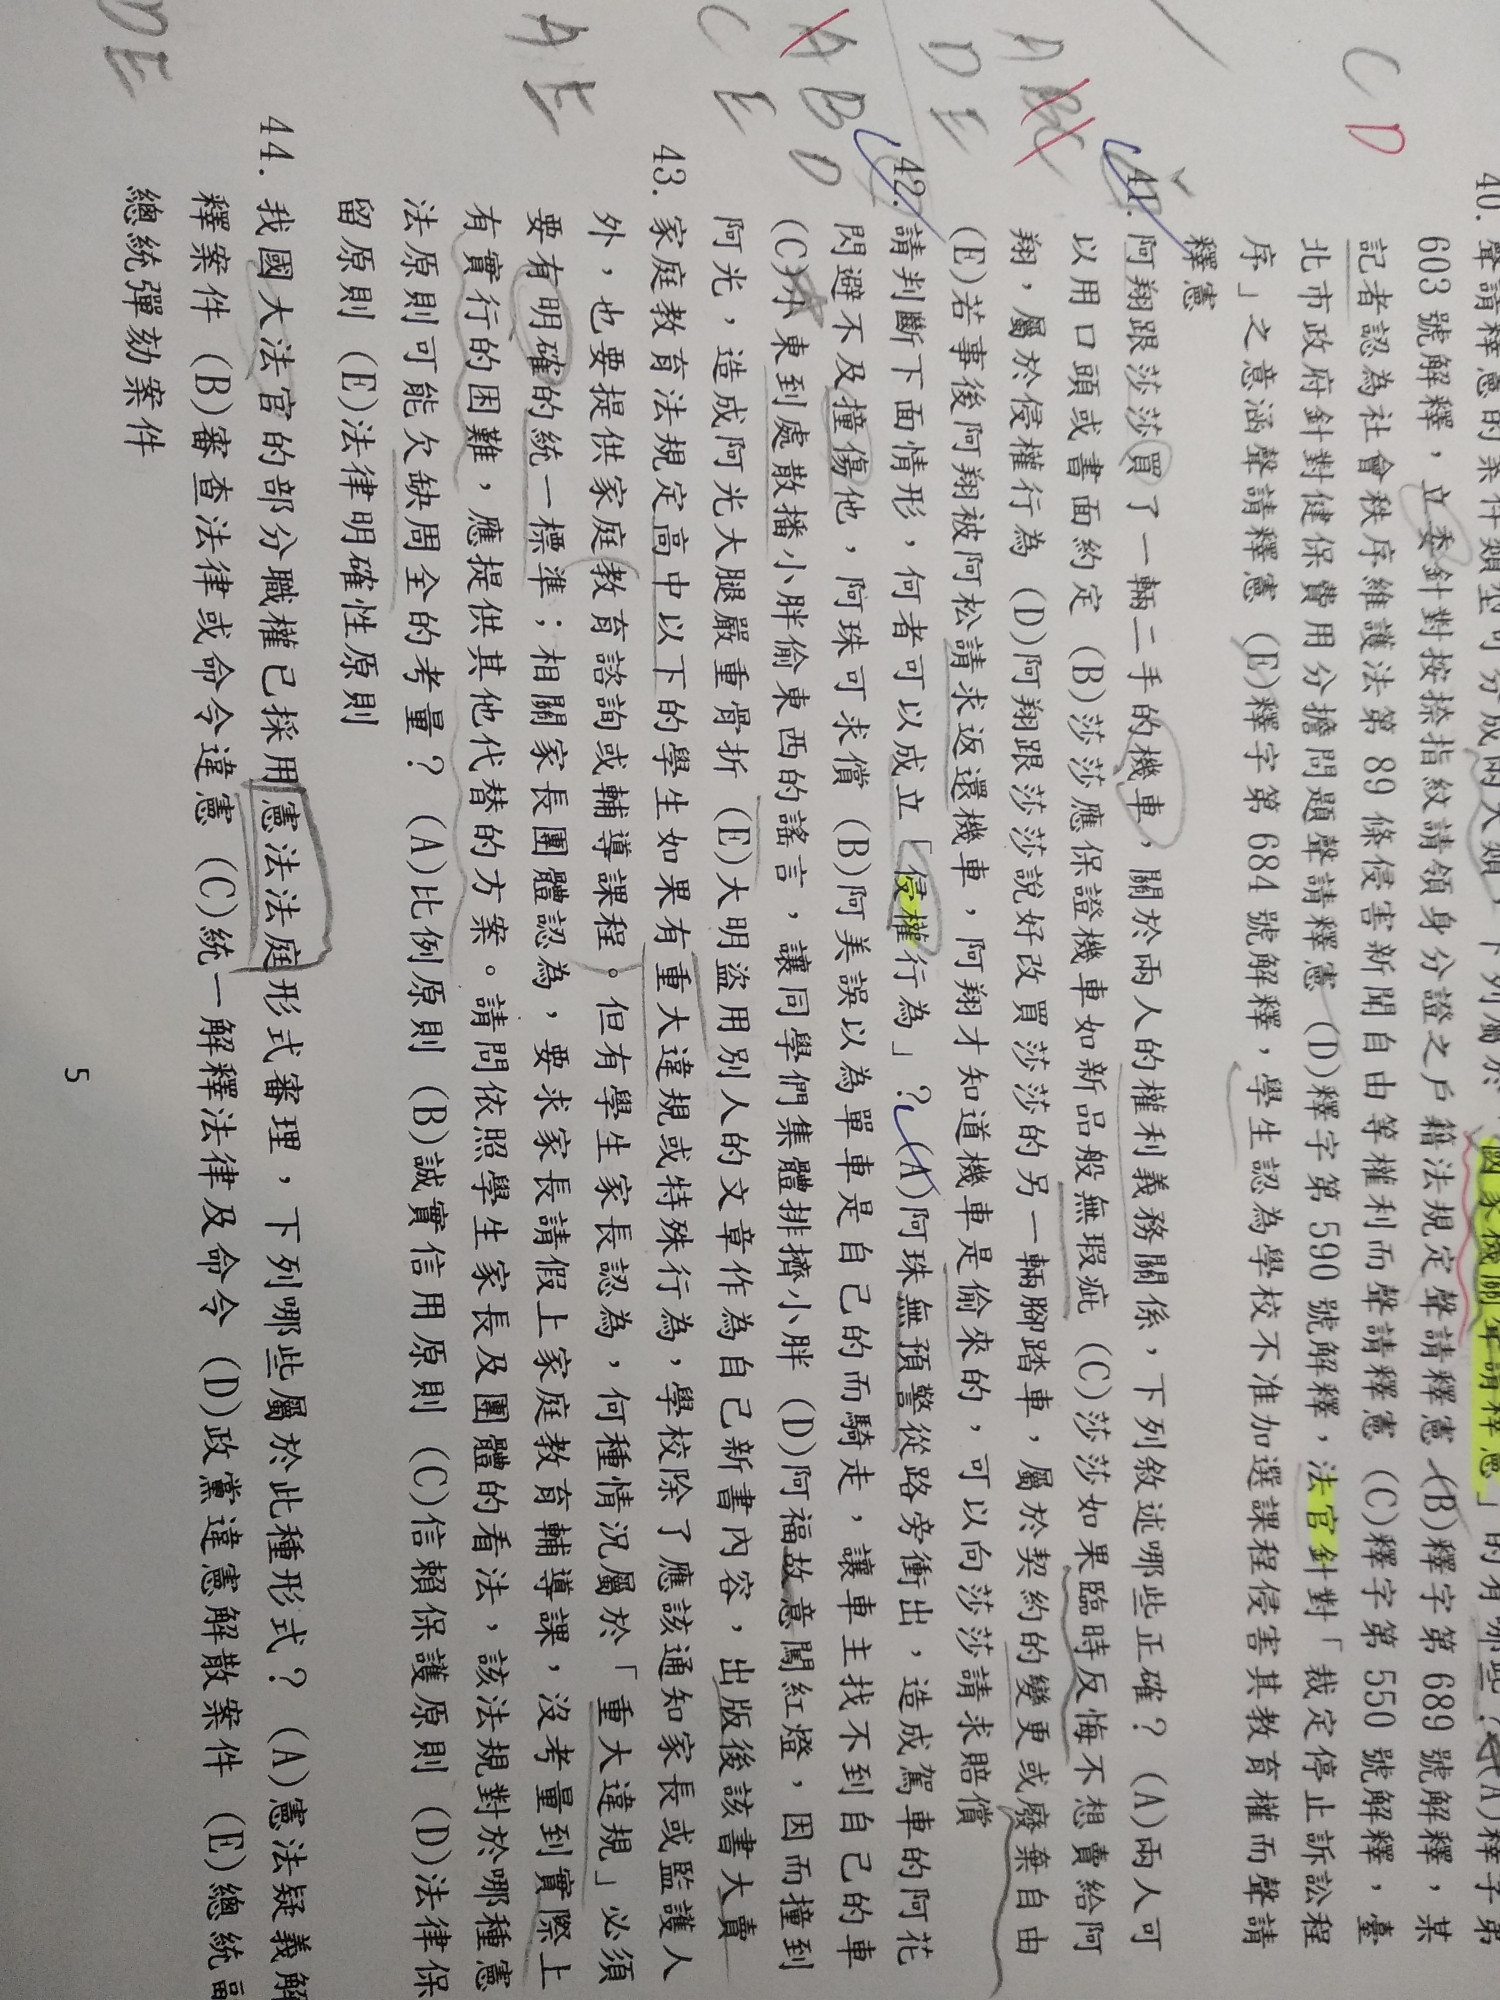 40.聲請釋憲的案件類型可分成兩大類，下列屬於「國家機關聲請釋憲」的有哪些？(A)釋字第
603 號解釋，立委針對按捺指紋請領身分證之戶籍法規定聲請釋憲 (B)釋字第 689 號解釋，某
記者認為社會秩序維護法第 89 條侵害新聞自由等權利而聲請釋憲 (C)釋字第 550 號解釋，臺
北市政府針對健保費用分擔問題聲請釋憲 (D)釋字第 590 號解釋，法官針對「裁定停止訴訟程
序」之意涵聲請釋憲 (E)釋字第 684 號解釋，學生認為學校不准加選課程侵害其教育權而聲請
釋憲
C D
41.阿翔跟莎莎買了一輛二手的機車，關於兩人的權利義務關係，下列敘述哪些正確？(A)兩人可
以用口頭或書面約定 (B)莎莎應保證機車如新品般無瑕疵 (C)莎莎如果臨時反悔不想賣給阿
翔，屬於侵權行為 (D)阿翔跟莎莎說好改買莎莎的另一輛腳踏車，屬於契約的變更或廢棄自由
(E)若事後阿翔被阿松請求返還機車，阿翔才知道機車是偷來的，可以向莎莎請求賠償
A BC
D E
42.請判斷下面情形，何者可以成立「侵權行為」？(A)阿珠無預警從路旁衝出，造成駕車的阿花
閃避不及撞傷他，阿珠可求償 (B)阿美誤以為單車是自己的而騎走，讓車主找不到自己的車
(C)小東到處散播小胖偷東西的謠言，讓同學們集體排擠小胖 (D)阿福故意闖紅燈，因而撞到
阿光，造成阿光大腿嚴重骨折 (E)大明盜用別人的文章作為自己新書內容，出版後該書大賣
A B D
C E
43.家庭教育法規定高中以下的學生如果有重大違規或特殊行為，學校除了應該通知家長或監護人
外，也要提供家庭教育諮詢或輔導課程。但有學生家長認為，何種情況屬於「重大違規」必須
要有明確的統一標準；相關家長團體認為，要求家長請假上家庭教育輔導課，沒考量到實際上
有實行的困難，應提供其他代替的方案。請問依照學生家長及團體的看法，該法規對於哪種憲
法原則可能欠缺周全的考量？(A)比例原則 (B)誠實信用原則 (C)信賴保護原則 (D)法律保
留原則 (E)法律明確性原則
A E
44.我國大法官的部分職權已採用憲法法庭形式審理，下列哪些屬於此種形式？(A)憲法疑義解
釋案件 (B)審查法律或命令違憲 (C)統一解釋法律及命令 (D)政黨違憲解散案件 (E)總統副
總統彈劾案件
DE
5